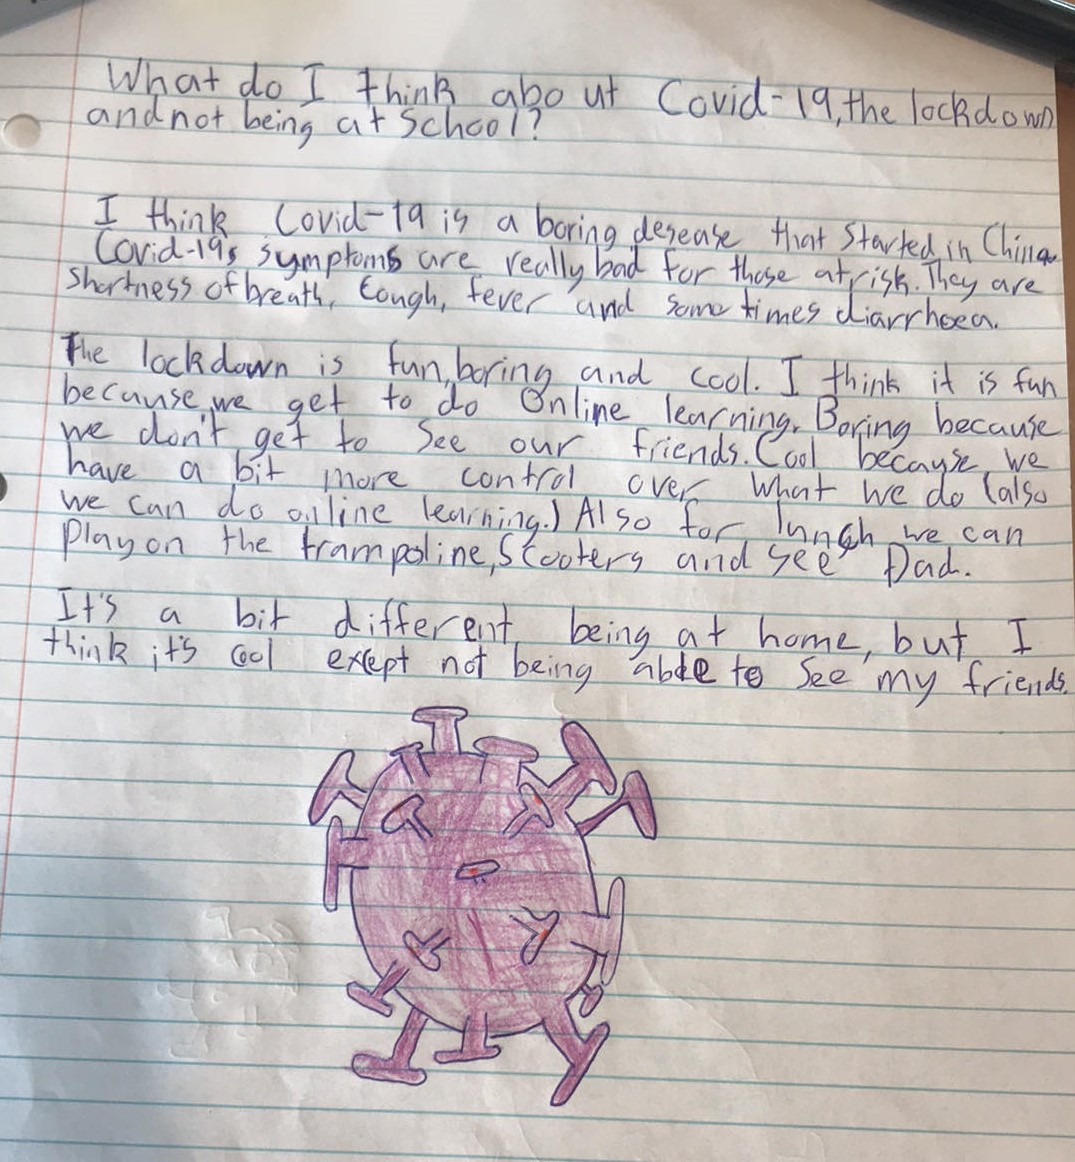 What do I think about Covid-19, the lockdown
and not being at school?
I think Covid-19 is a boring desease that started in China
Covid-19s symptoms are really bad for those at risk. They are
shortness of breath, Cough, fever and some times diarrhoea.
The lockdown is fun, boring and cool. I think it is fun
because, we get to do Online learning. Boring because
we don't get to see our friends. Cool because, we
have a bit more control over what we do (also
we can do online learning.) Also for lunch we can
Play on the trampoline, Scooters and see Dad.
It's a bit different being at home, but I
think it's cool except not being able to see my friends.